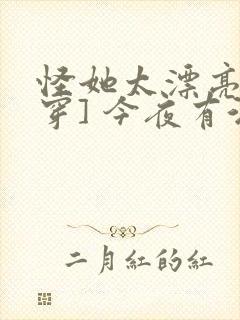 怪她太漂亮
穿] 今夜有
二月紅的紅